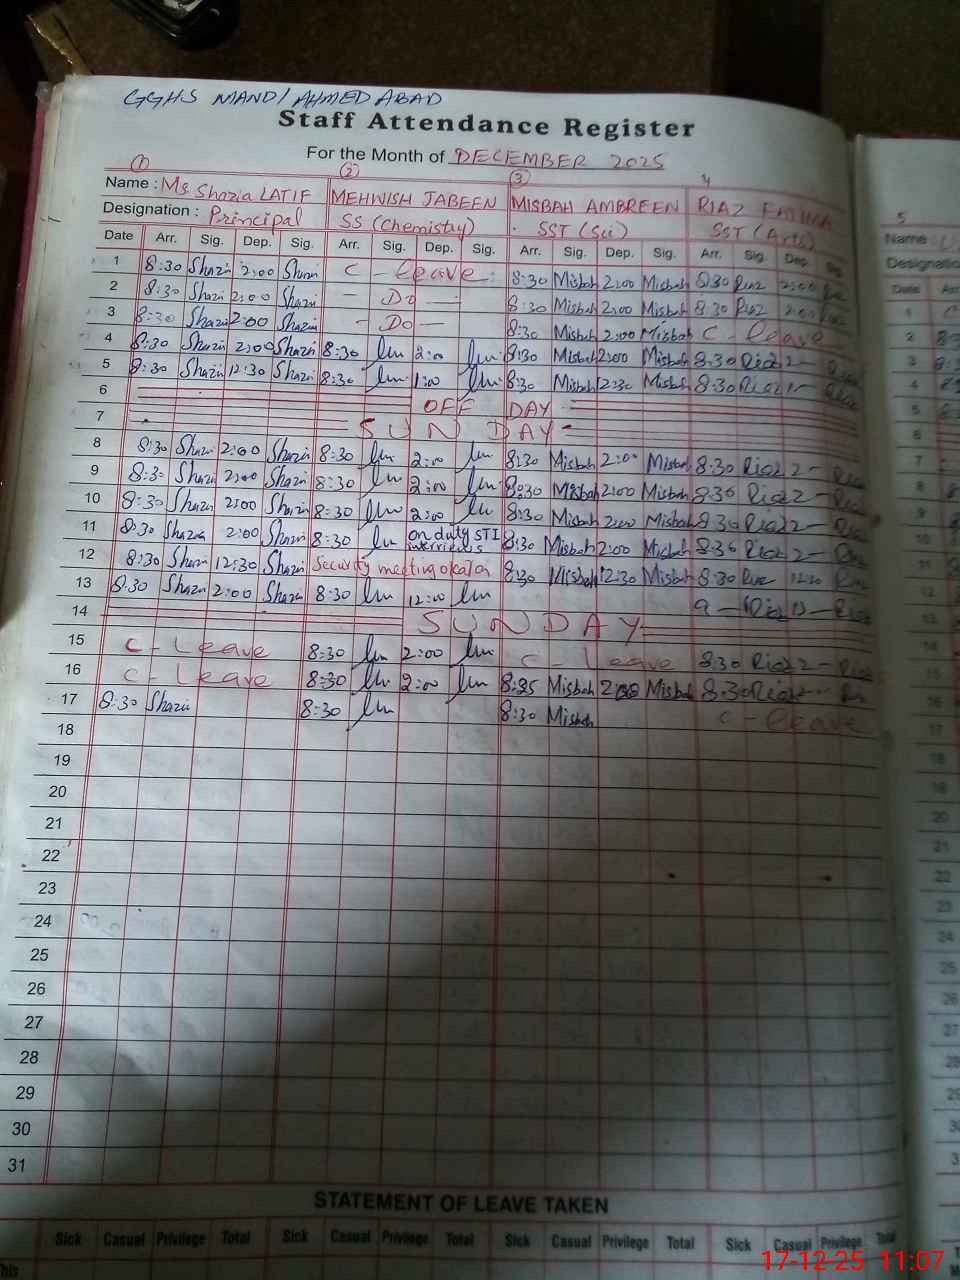 GGHS MANDI AHMED ABAD
Staff Attendance Register
For the Month of DECEMBER 2025
1 2 3 4
Name : Ms Shazia LATIF MEHWISH JABEEN MISBAH AMBREEN RIAZ FATIMA
Designation : Principal SS (Chemistry) SST (Sci) SST (Arts)
Date Arr. Sig. Dep. Sig. Arr. Sig. Dep. Sig. Arr. Sig. Dep. Sig. Arr. Sig. Dep. Sig.
1 8:30 Shazia 2:00 Shazia C - leave 8:30 Misbah 2:00 Misbah 8:30 Riaz 2:00 Riaz
2 8:30 Shazia 2:00 Shazia - Do - 8:30 Misbah 2:00 Misbah 8:30 Riaz 2:00
3 8:30 Shazia 2:00 Shazia - Do - 8:30 Misbah 2:00 Misbah C - leave
4 8:30 Shazia 2:00 Shazia 8:30 2:00 8:30 Misbah 2:00 Misbah 8:30 Riaz 2 - Riaz
5 8:30 Shazia 12:30 Shazia 8:30 1:00 8:30 Misbah Misbah 8:30 Riaz Riaz
6 OFF DAY
7 SUNDAY
8 8:30 Shazia 2:00 Shazia 8:30 2:00 8:30 Misbah 2:00 Misbah 8:30 Riaz 2 - Riaz
9 8:30 Shazia 2:00 Shazia 8:30 2:00 8:30 Misbah 2:00 Misbah 8:30 Riaz 2 - Riaz
10 8:30 Shazia 2:00 Shazia 8:30 2:00 8:30 Misbah 2:00 Misbah 8:30 Riaz 2 - Riaz
11 8:30 Shazia 2:00 Shazia 8:30 on duty STI interviews 8:30 Misbah 2:00 Misbah 8:30 Riaz 2 - Riaz
12 8:30 Shazia 12:30 Shazia Security meeting okara 8:30 Misbah 12:30 Misbah 8:30 Riaz Riaz
13 8:30 Shazia 2:00 Shazia 8:30 12:00 9 - Riaz Riaz
14 SUNDAY
15 C - Leave 8:30 2:00 C - Leave 8:30 Riaz 2 - Riaz
16 C - Leave 8:30 2:00 8:25 Misbah 2:00 Misbah 8:30 Riaz 2 -
17 8:30 Shazia 8:30 8:30 Misbah C - leave
18
19
20
21
22
23
24
25
26
27
28
29
30
31
STATEMENT OF LEAVE TAKEN
Sick Casual Privilege Total Sick Casual Privilege Total Sick Casual Privilege Total Sick Casual Privilege Total
This
5
Name :
Designation
Date
1
2
3
4
5
6
7
8
9
10
11
12
13
14
15
16
17
18
19
20
21
22
23
24
25
26
27
17-12-25 11:07